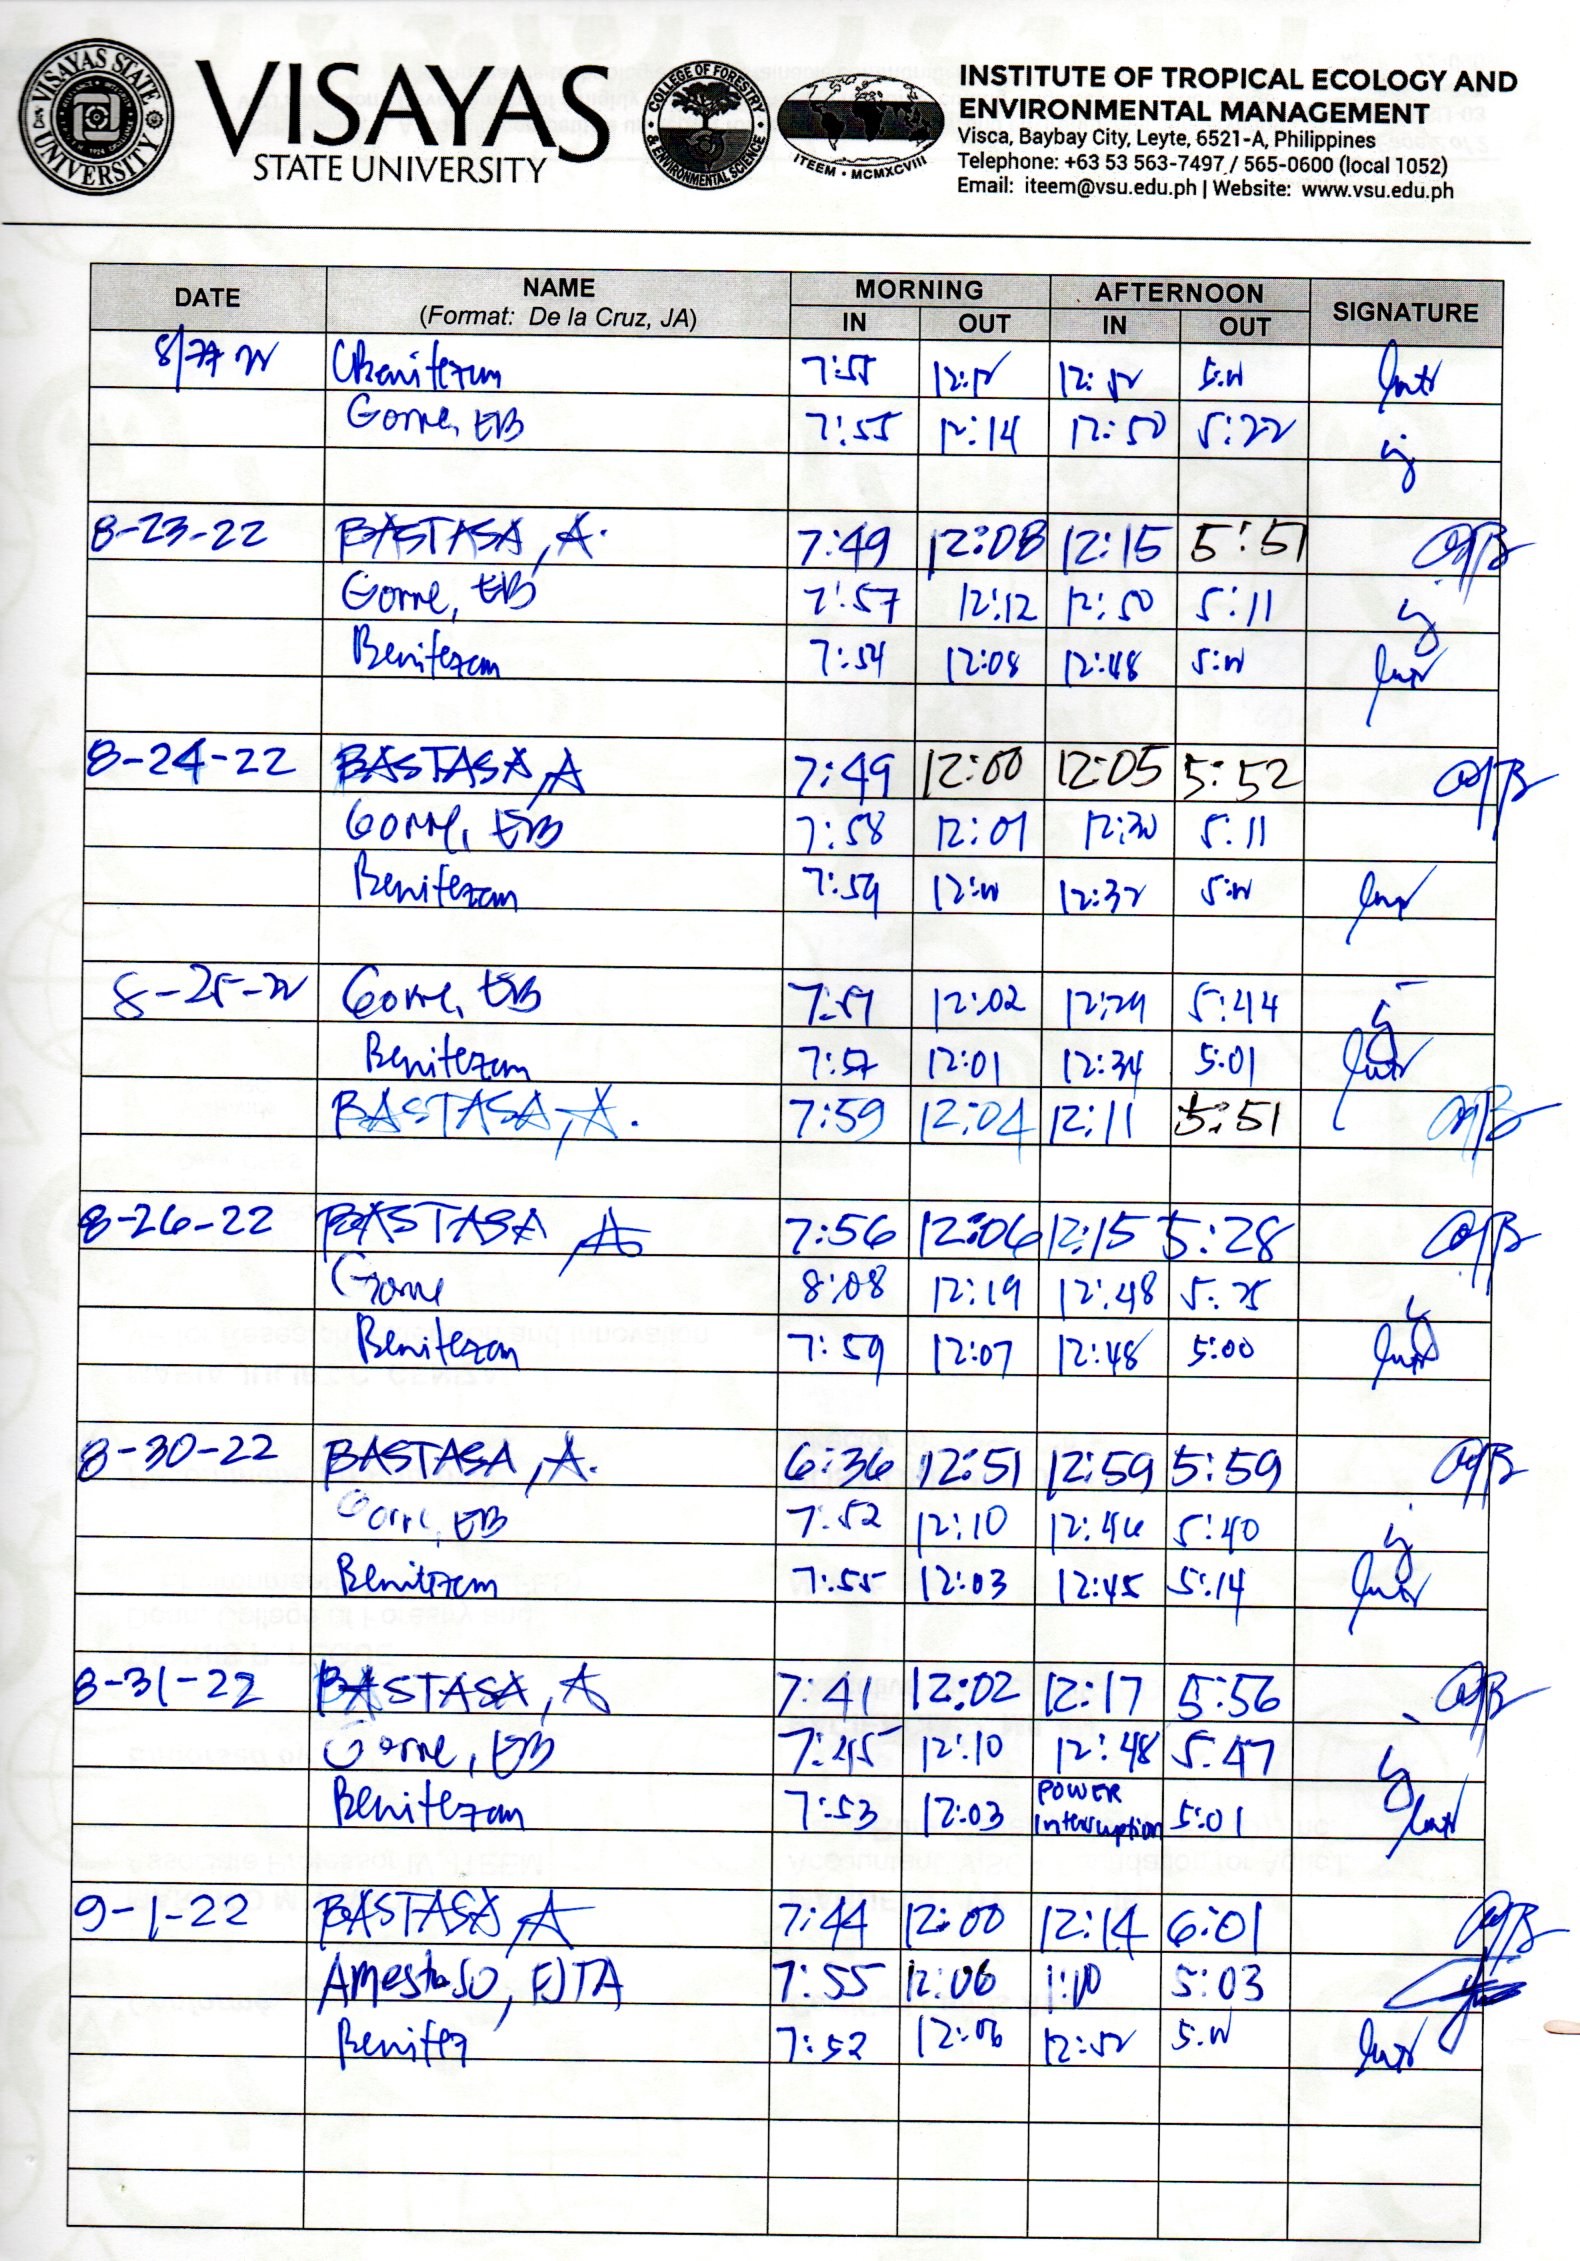 VISAYAS STATE UNIVERSITY
VISAYAS
STATE UNIVERSITY
COLLEGE OF FORESTRY & ENVIRONMENTAL SCIENCE
ITEEM • MCMXCVIII
INSTITUTE OF TROPICAL ECOLOGY AND
ENVIRONMENTAL MANAGEMENT
Visca, Baybay City, Leyte, 6521-A, Philippines
Telephone: +63 53 563-7497 / 565-0600 (local 1052)
Email: iteem@vsu.edu.ph | Website: www.vsu.edu.ph
DATE NAME MORNING AFTERNOON SIGNATURE
(Format: De la Cruz, JA) IN OUT IN OUT
7:55
Gorne, EB 7:55 12:14 12:50 5:22
8-23-22 BASTASA, A. 7:49 12:08 12:15 5:51
Gorne, EB 7:57 12:12 12:50 5:11
Benitezam 7:54 12:08 12:48
8-24-22 BASTASA, A 7:49 12:00 12:05 5:52
Gorne, EB 7:58 12:01 12:30 5:11
Benitezam 7:59 12:32
8-25-22 Gorne, EB 12:02 12:29 5:44
Benitezam 7:57 12:01 12:34 5:01
BASTASA, A. 7:59 12:04 12:11 5:51
8-26-22 BASTASA, A 7:56 12:06 12:15 5:28
Gorne 8:08 12:19 12:48 5:25
Benitezam 7:59 12:07 12:48 5:00
8-30-22 BASTASA, A. 6:36 12:51 12:59 5:59
Gorne, EB 7:52 12:10 12:46 5:40
Benitezam 7:55 12:03 12:45 5:14
8-31-22 BASTASA, A 7:41 12:02 12:17 5:56
Gorne, EB 7:45 12:10 12:48 5:47
Benitezam 7:53 12:03 POWER Interruption 5:01
9-1-22 BASTASA, A 7:44 12:00 12:14 6:01
Amestoso, EJTA 7:55 12:06 1:10 5:03
Benitez 7:52 12:06 12:52